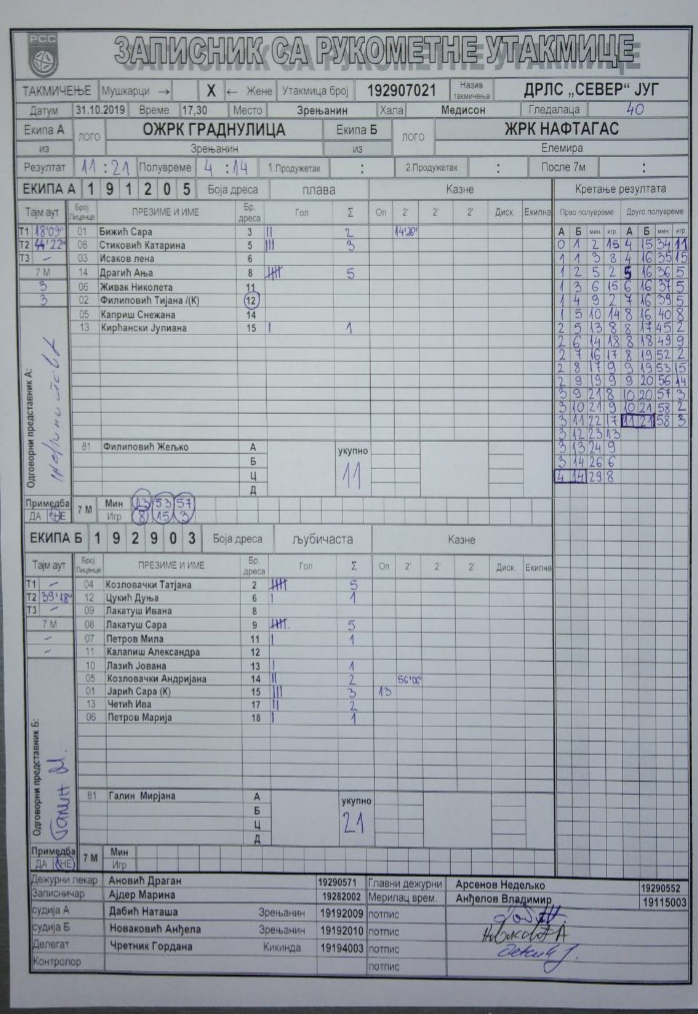 РСС
ЗАПИСНИК СА РУКОМЕТНЕ УТАКМИЦЕ
ТАКМИЧЕЊЕ Мушкарци → X ← Жене Утакмица број 192907021 Назив такмичења ДРЛС „СЕВЕР“ ЈУГ
Датум 31.10.2019 Време 17,30 Место Зрењанин Хала Медисон Гледалаца 40
Екипа А ЛОГО ОЖРК ГРАДНУЛИЦА Екипа Б ЛОГО ЖРК НАФТАГАС
из Зрењанин из Елемира
Резултат 11 : 21 Полувреме 4 : 14 1.Продужетак : 2.Продужетак : После 7м :
ЕКИПА А 1 9 1 2 0 5 Боја дреса плава Казне Кретање резултата
Тајм аут Број Лиценце ПРЕЗИМЕ И ИМЕ Бр. дреса Гол Σ Оп 2' 2' 2' Диск. Екипна Прво полувреме Друго полувреме
А Б мин. игр. А Б мин. игр.
Т1 18'09" 01 Бижић Сара 3 II 2 14'20"
Т2 44'22" 08 Стиковић Катарина 5 III 3
Т3 – 03 Исаков лена 6
7 М 14 Драгић Ања 8 5
3 06 Живак Николета 11
3 02 Филиповић Тијана /(К) 12
05 Каприш Снежана 14
13 Кирћански Јулиана 15 I 1
0 1 2 15 4 15 34 11
1 1 3 8 4 16 35 15
1 2 5 2 5 16 36 5
1 3 6 15 6 16 37 5
1 4 9 2 7 16 39 5
1 5 10 14 8 16 40 8
2 5 13 8 8 17 45 2
2 6 14 18 8 18 49 9
2 7 16 17 8 19 52 2
2 8 17 9 9 19 53 15
2 9 19 9 9 20 56 14
3 9 21 8 10 20 57 3
3 10 21 9 10 21 58 2
3 11 22 17 11 21 58 3
3 12 23 13
3 13 24 9
3 14 26 6
4 14 29 8
Одговорни представник А:
81 Филиповић Жељко А укупно
Б 11
Ц
Д
Примедба ДА НЕ 7 М Мин 13 53 57
Игр 8 15 3
ЕКИПА Б 1 9 2 9 0 3 Боја дреса љубичаста Казне
Тајм аут Број Лиценце ПРЕЗИМЕ И ИМЕ Бр. дреса Гол Σ Оп 2' 2' 2' Диск. Екипна
Т1 – 04 Козловачки Татјана 2 5
Т2 39'18" 12 Цукић Дуња 6 I 1
Т3 – 09 Лакатуш Ивана 8
7 М 08 Лакатуш Сара 9 5
– 07 Петров Мила 11 I 1
– 11 Калапиш Александра 12
10 Лазић Јована 13 I 1
05 Козловачки Андријана 14 II 2 56'00"
01 Јарић Сара (К) 15 III 3 13
13 Четић Ива 17 II 2
06 Петров Марија 18 I 1
Одговорни представник Б: Галин М.
81 Галин Мирјана А укупно
Б 21
Ц
Д
Примедба ДА НЕ 7 М Мин
Игр
Дежурни лекар Ановић Драган 19290571 Главни дежурни Арсенов Недељко 19290552
Записничар Ајдер Марина 19282002 Мерилац врем. Анђелов Владимир 19115003
судија А Дабић Наташа Зрењанин 19192009 потпис
судија Б Новаковић Анђела Зрењанин 19192010 потпис
Делегат Чретник Гордана Кикинда 19194003 потпис
Контролор потпис